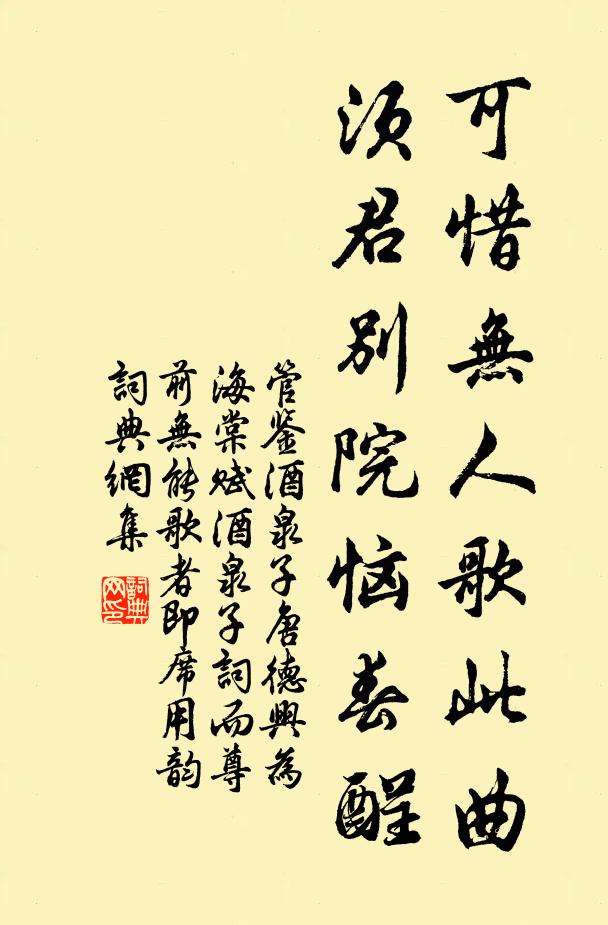 可惜無人歌此曲
須君別院惱春酲
管鉴酒泉子唐德興為
海棠赋酒泉子詞而尊
前無能歌者即席用韵
詞典網集
詞典
网印